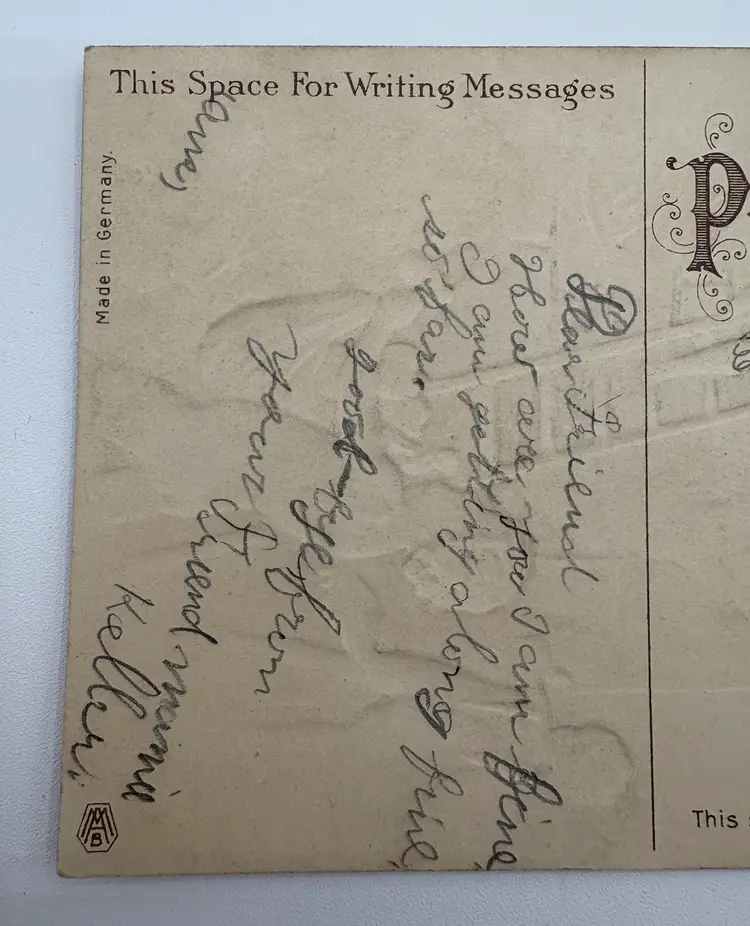 This Space For Writing Messages
Made in Germany.
Dear Friend
How are you I am fine,
I am getting along fine,
so far.
Good-bye from
Your
Friend mamie
Keller.
P
This